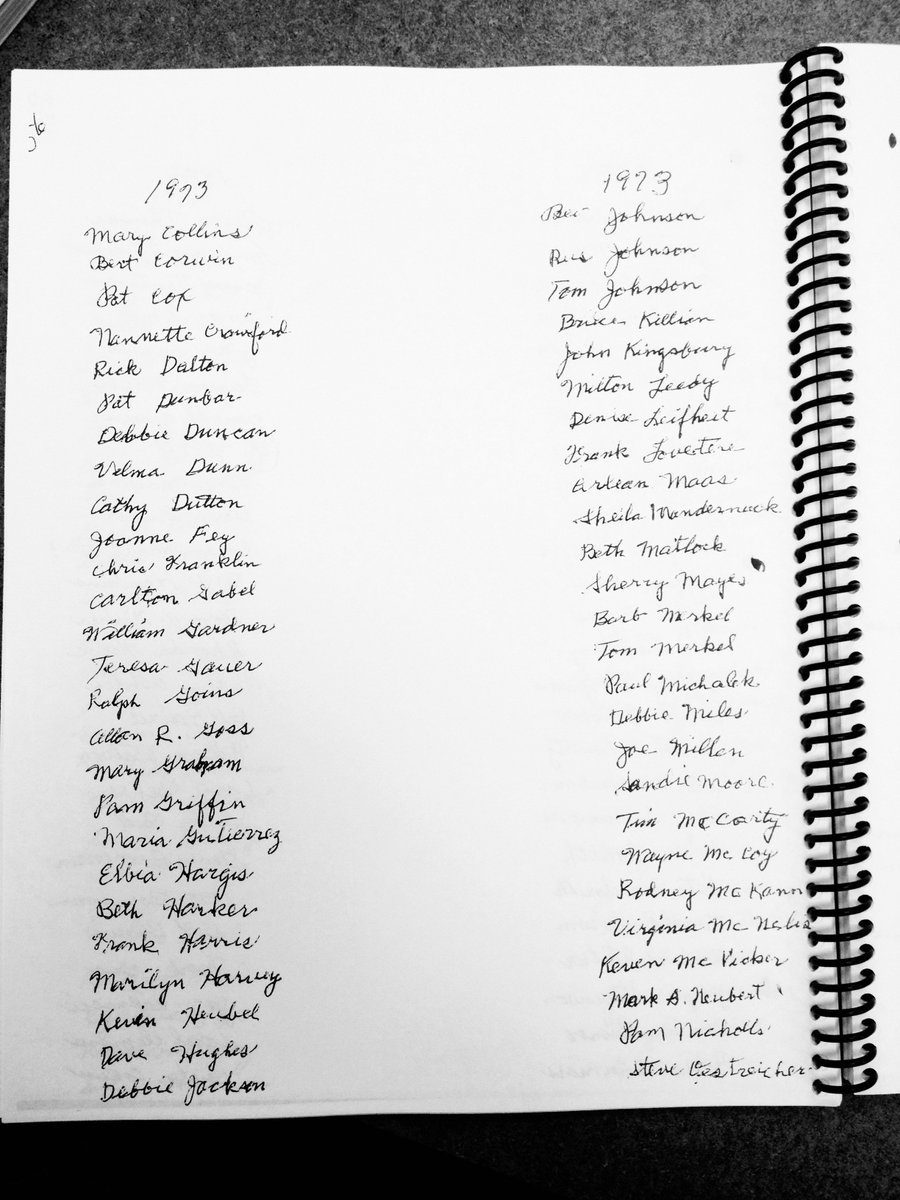 1973
Mary Collins
Bert Corwin
Pat Cox
Nannette Crawford
Rick Dalton
Pat Dunbar
Debbie Duncan
Velma Dunn
Cathy Dutton
Joanne Fey
Chris Franklin
Carlton Gabel
William Gardner
Teresa Gauer
Ralph Goins
Allan R. Goss
Mary Graham
Pam Griffin
Maria Gutierrez
Elbia Hargis
Beth Harker
Frank Harris
Marilyn Harvey
Kevin Heubel
Dave Hughes
Debbie Jackson
1973
Johnson
Johnson
Tom Johnson
Bruce Killian
John Kingsbury
Milton Leedy
Denise Leifheit
Frank Lovetere
Arlean Maas
Sheila Mandernack
Beth Matlock
Sherry Mayes
Barb Merkel
Tom Merkel
Paul Michalek
Debbie Miles
Joe Millen
Sandie Moore
Tim McCarty
Wayne McCoy
Rodney McKann
Virginia
Keven McVicker
Mark A. Neubert
Pam Nicholls
Steve Oestreicher